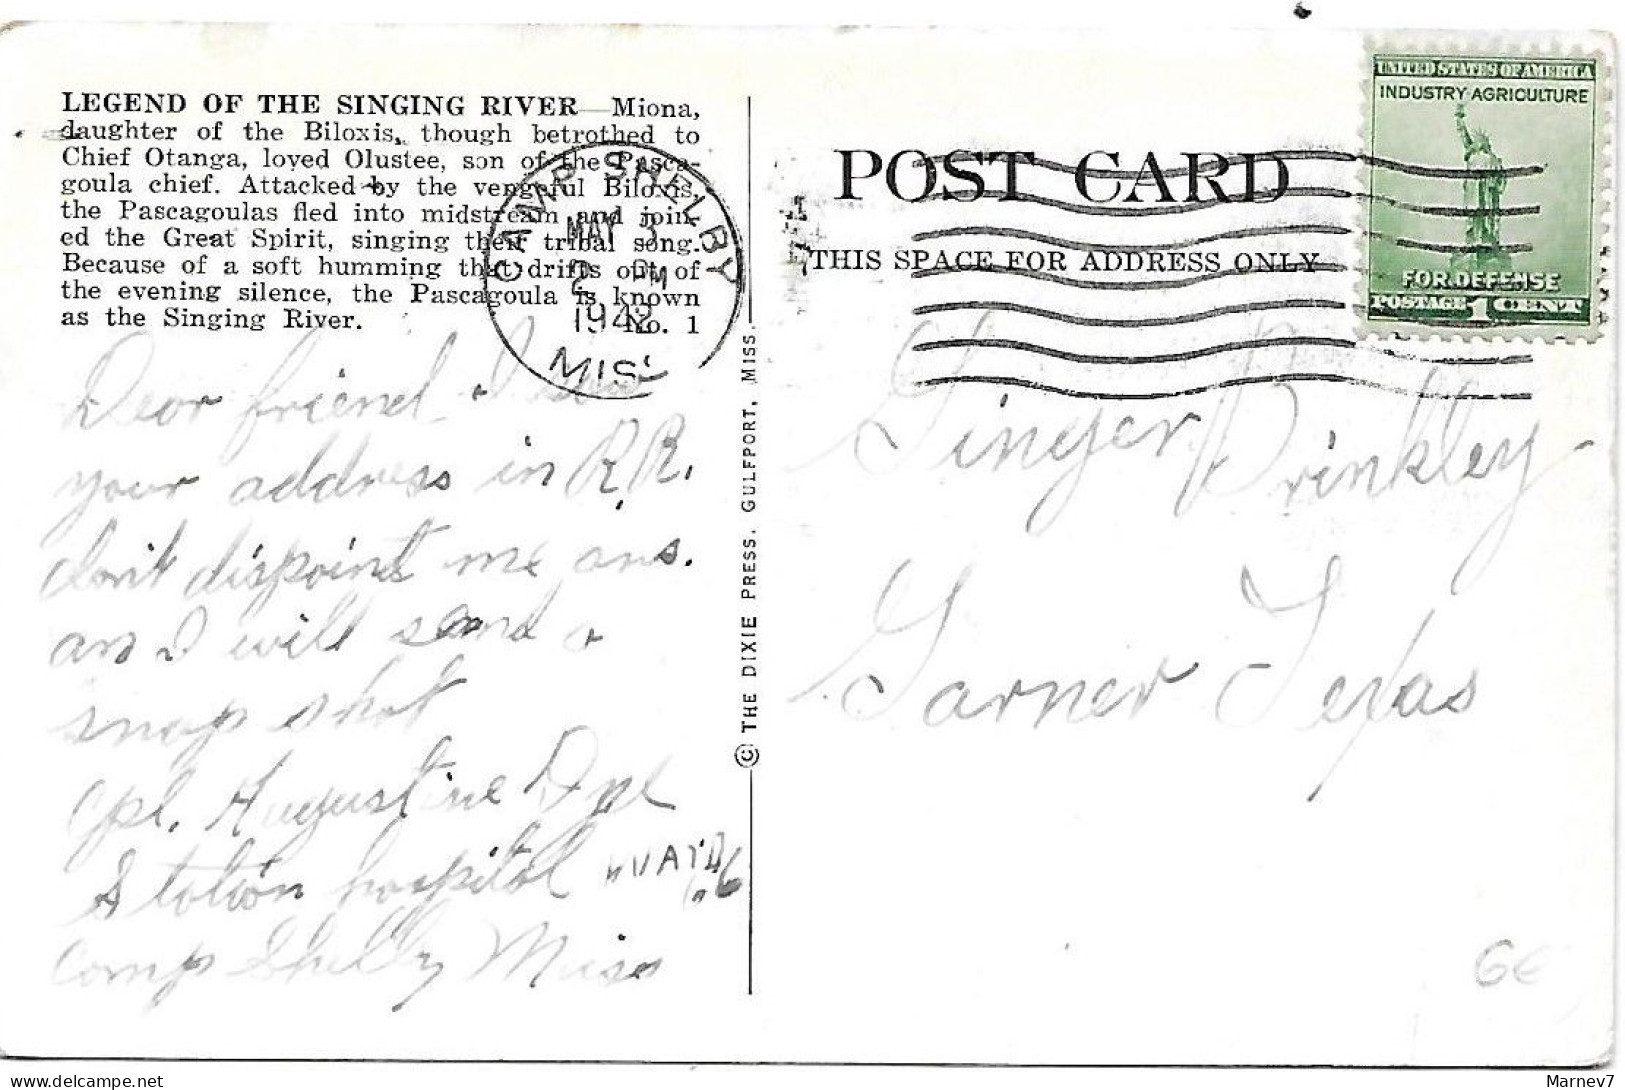 LEGEND OF THE SINGING RIVER—Miona,
daughter of the Biloxis, though betrothed to
Chief Otanga, loved Olustee, son of the Pasca-
goula chief. Attacked by the vengeful Biloxis,
the Pascagoulas fled into midstream and join-
ed the Great Spirit, singing their tribal song.
Because of a soft humming that drifts out of
the evening silence, the Pascagoula is known
as the Singing River. No. 1
CAMP SHELBY
MAY 3
2 PM
1942
MISS
Dear friend I
your address in R.R.
don't dispoint me ans.
an I will send a
snap shot
Cpl. Augustine
Station hospital
Camp Shelby Miss
© THE DIXIE PRESS, GULFPORT, MISS.
POST CARD
THIS SPACE FOR ADDRESS ONLY
UNITED STATES OF AMERICA
INDUSTRY AGRICULTURE
FOR DEFENSE
POSTAGE 1 CENT
Ginger Brinkley
Garner Texas
6€
Marnev7
delcampe.net